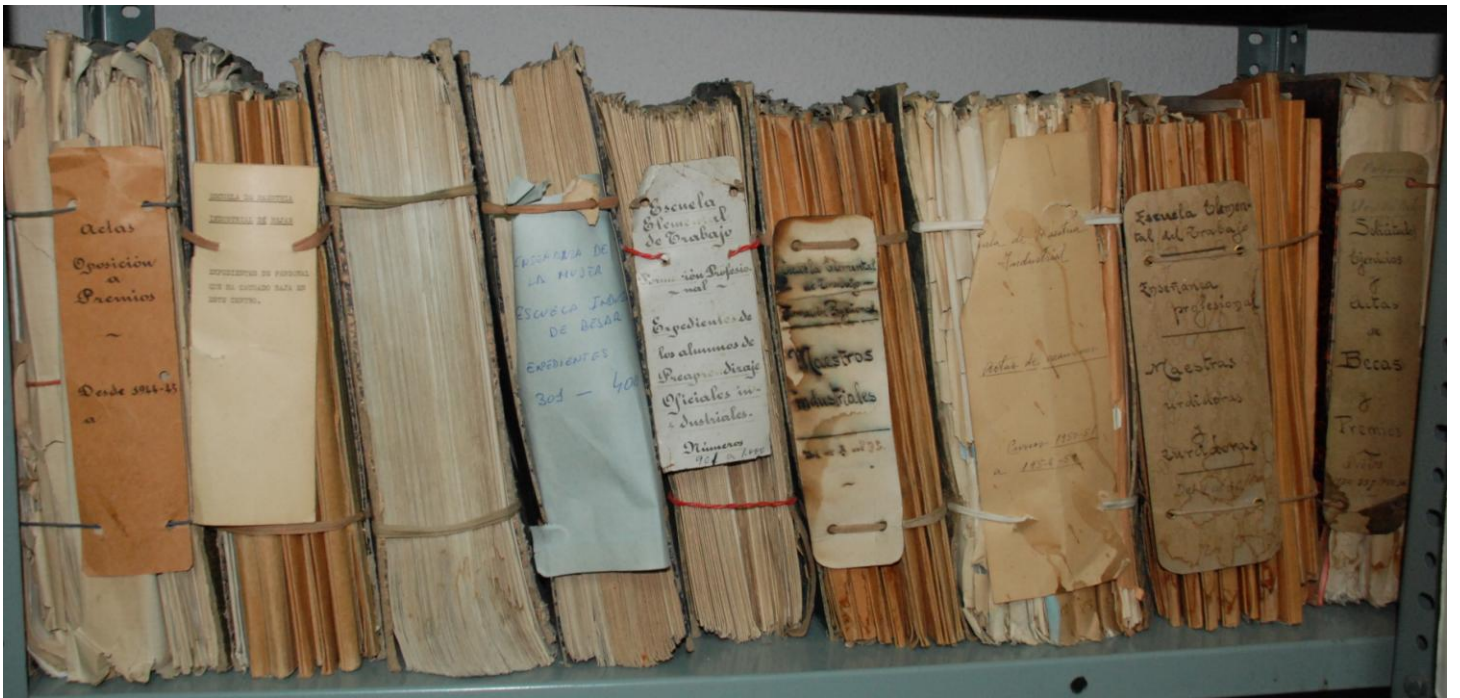 Actas
Oposición
a
Premios
Desde 1944-45
a
ESCUELA DE MAESTRIA
INDUSTRIAL DE BEJAR
EXPEDIENTES DE PERSONAL
QUE HA CAUSADO BAJA EN
ESTE CENTRO.
ENSEÑANZA DE
LA MUJER
ESCUELA INDUS
DE BEJAR
EXPEDIENTES
301 — 400
Escuela
Elemental
de Trabajo
Formación Profesio-
nal
Expedientes de
los alumnos de
Preaprendizaje
Oficiales in-
dustriales.
Números
901 a
Escuela elemental
de Trabajo
Maestros
industriales
de Maestria
Industrial
Actas de examenes
Curso
a
Escuela Elemen-
tal del Trabajo
Enseñanza
profesional
Maestras
urdidoras
y
zurcidoras
Solicitudes
Ejercicios
y
actas
de
Becas
y
Premios